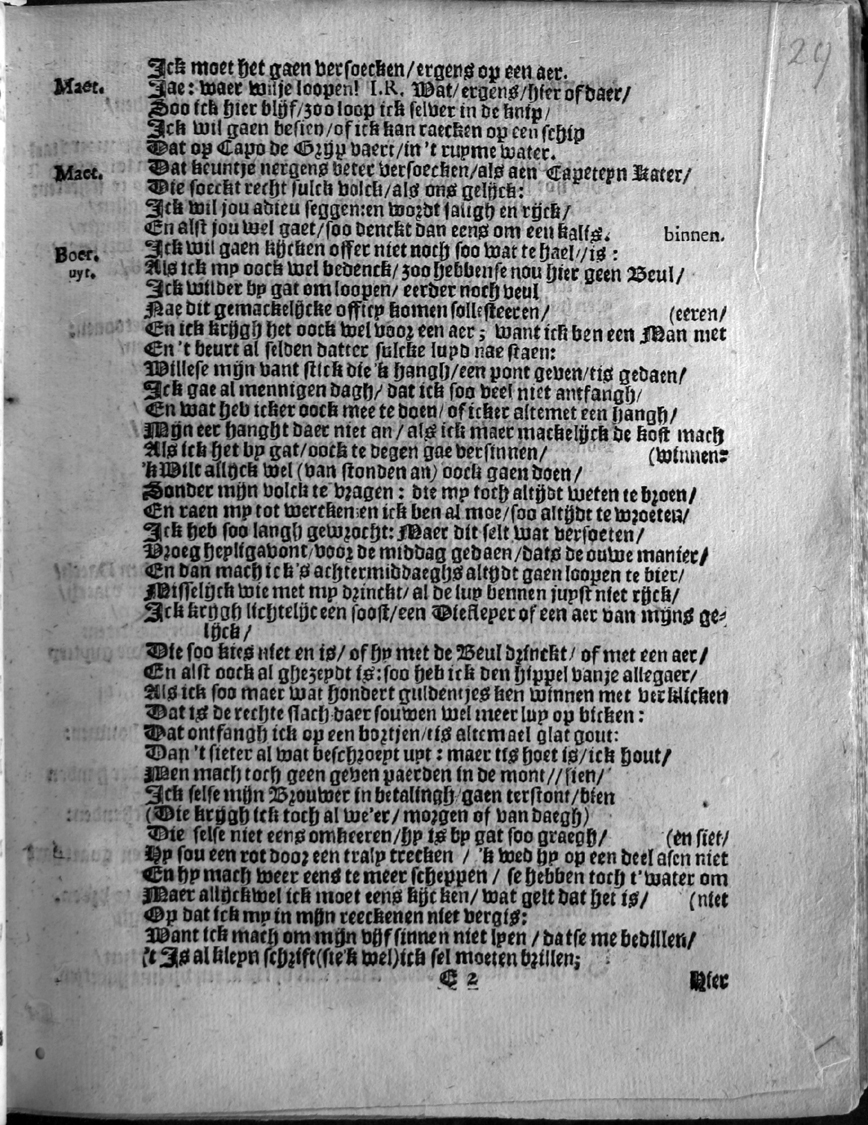 29
Ick moet het gaen versoecken/ergens op een aer.
Maet. Jae: waer wilje loopen! I.R. Wat/ergens/hier of daer/
Soo ick hier blijf/zoo loop ick selver in de knip/
Ick wil gaen besien/of ick kan raecken op een schip
Dat op Capo de Grijp vaert/in 't ruyme water.
Maet. Dat keuntje nergens beter versoecken/als aen Capeteyn Kater/
Die soeckt recht sulck volck/als ons gelijck:
Ick wil jou adieu seggen:en wordt saligh en rijck/
En alst jou wel gaet/soo denckt dan eens om een kalis. binnen.
Boer. Ick wil gaen kijcken offer niet noch soo wat te hael//is:
uyt. Als ick my oock wel bedenck/zoo hebbense nou hier geen Beul/
Ick wilder by gat om loopen/eerder noch veul
Nae dit gemackelijcke officy komen sollesteeren/ (eeren/
En ick krijgh het oock wel voor een aer; want ick ben een Man met
En 't beurt al selden datter sulcke luyd nae staen:
Willese mijn vant stick die 'k hangh/een pont geven/tis gedaen/
Ick gae al mennigen dagh/dat ick soo veel niet antfangh/
En wat heb icker oock mee te doen/of icker altemet een hangh/
Mijn eer hanght daer niet an/als ick maer mackelijck de kost mach
Als ick het by gat/oock te degen gae versinnen/ (winnen:
'k Wilt allijck wel (van stonden an) oock gaen doen/
Sonder mijn volck te vragen: die my toch altijdt weten te broen/
En raen my tot wercken:en ick ben al moe/soo altijdt te wroeten/
Ick heb soo langh gewrocht: Maer dit selt wat versoeten/
Vroeg heyligavont/voor de middag gedaen/dats de ouwe manier/
En dan mach ick 's achtermiddaeghs altijdt gaen loopen te bier/
Misselijck wie met my drinckt/al de luy bennen juyst niet rijck/
Ick krijgh lichtelijc een soost/een Diefleyer of een aer van mijns ge-
lijck/
Die soo kies niet en is/of hy met de Beul drinckt/of met een aer/
En alst oock al ghezeydt is:soo heb ick den hippel vanje allegaer/
Als ick soo maer wat hondert guldentjes ken winnen met verklicken
Dat is de rechte slach daer souwen wel meer luy op bicken:
Dat ontfangh ick op een bortjen/tis altemael glat gout:
Dan 't sieter al wat beschroeyt uyt: maer tis hoet is/ick hout/
Men mach toch geen geven paerden in de mont//sien/
Ick selse mijn Brouwer in betalingh gaen terstont/bien
(Die krijgh ick toch al we'er/morgen of van daegh)
Die selse niet eens omkeeren/hy is by gat soo graegh/ (en siet/
Hy sou een rot door een traly trecken / 'k wed hy op een deel asen niet
En hy mach weer eens te meer scheppen / se hebben toch t'water om
Maer allijckwel ick moet eens kijcken/wat gelt dat het is/ (niet
Op dat ick my in mijn reeckenen niet vergis:
Want ick mach om mijn vijf sinnen niet lyen / datse me bedillen/
't Is al kleyn schrift(sie'k wel)ick sel moeten brillen;
E 2 Hier